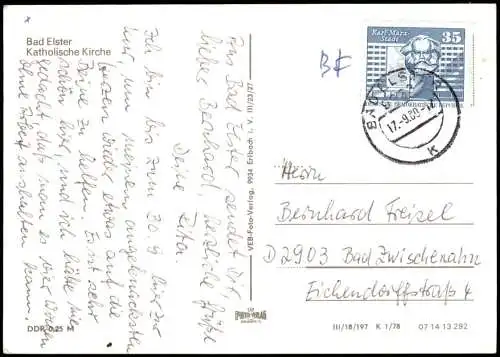 Bad Elster
Katholische Kirche
Aus Bad Elster sendet Dir,
lieber Bernhard, herzliche Grüße
Deine Rita.
Ich bin bis zum 30.9 hier zur
Kur, um meinen angeknacksten
wieder etwas auf die
Beine zu helfen. Es ist sehr
schön hier, und ich hätte nie
gedacht daß man es vier Wochen
ohne Arbeit aushalten kann.
DDR 0,25 M
VEB-Foto-Verlag, 9934 Erlbach i. V. A III/23/27
FOTO-VERLAG
Karl-Marx-
Stadt
35
BAD ELSTER
17.-9.80
K
Herrn
Bernhard Freisel
D 2903 Bad Zwischenahn
Eichendorffstraß 4
III/18/197 K 1/78 07 14 13 292